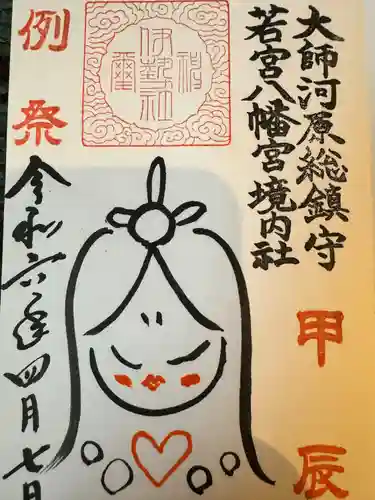 大師河原総鎮守
若宮八幡宮境内社
甲辰
例祭
令和六年四月七日